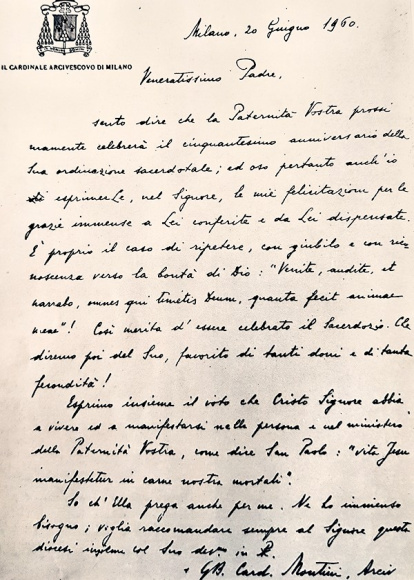 IL CARDINALE ARCIVESCOVO DI MILANO
Milano, 20 Giugno 1960.
Veneratissimo Padre,
sento dire che la Paternità Vostra prossi
mamente celebrerà il cinquantesimo anniversario della
Sua ordinazione sacerdotale; ed oso pertanto anch'io
esprimerLe, nel Signore, le mie felicitazioni per le
grazie immense a Lei conferite e da Lei dispensate.
È proprio il caso di ripetere, con giubilo e con rico
noscenza verso la bontà di Dio: "Venite, audite, et
narrabo, omnes qui timetis Deum, quanta fecit animae
meae"! Così merita d'essere celebrato il Sacerdozio. Che
diremo poi del Suo, favorito di tanti doni e di tanta
fecondità!
Esprimo insieme il voto che Cristo Signore abbia
a vivere ed a manifestarsi nella persona e nel ministero
della Paternità Vostra, come dire San Paolo: "vita Jesu
manifestetur in carne nostra mortali".
So ch'Ella prega anche per me. Ne ho immenso
bisogno; voglia raccomandare sempre al Signore questa
diocesi insieme col Suo dev.mo in
+ GB. Card. Montini, Arciv